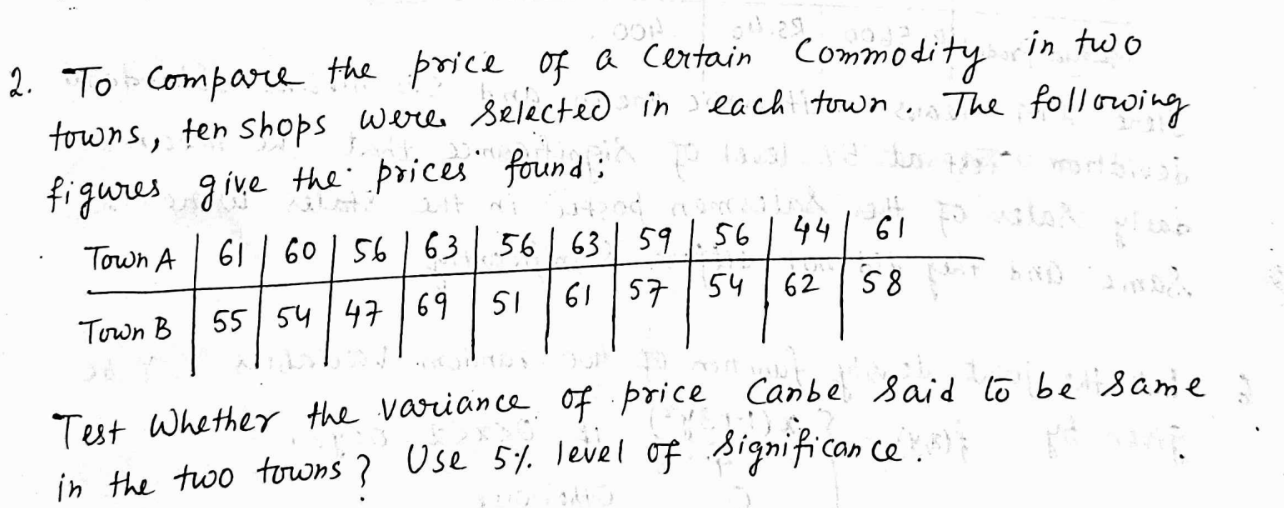 2. To Compare the price of a Certain Commodity in two
towns, ten shops were selected in each town. The following
figures give the prices found:
Town A | 61 | 60 | 56 | 63 | 56 | 63 | 59 | 56 | 44 | 61
Town B | 55 | 54 | 47 | 69 | 51 | 61 | 57 | 54 | 62 | 58
Test Whether the variance of price Canbe Said to be Same
in the two towns? Use 5% level of Significance.